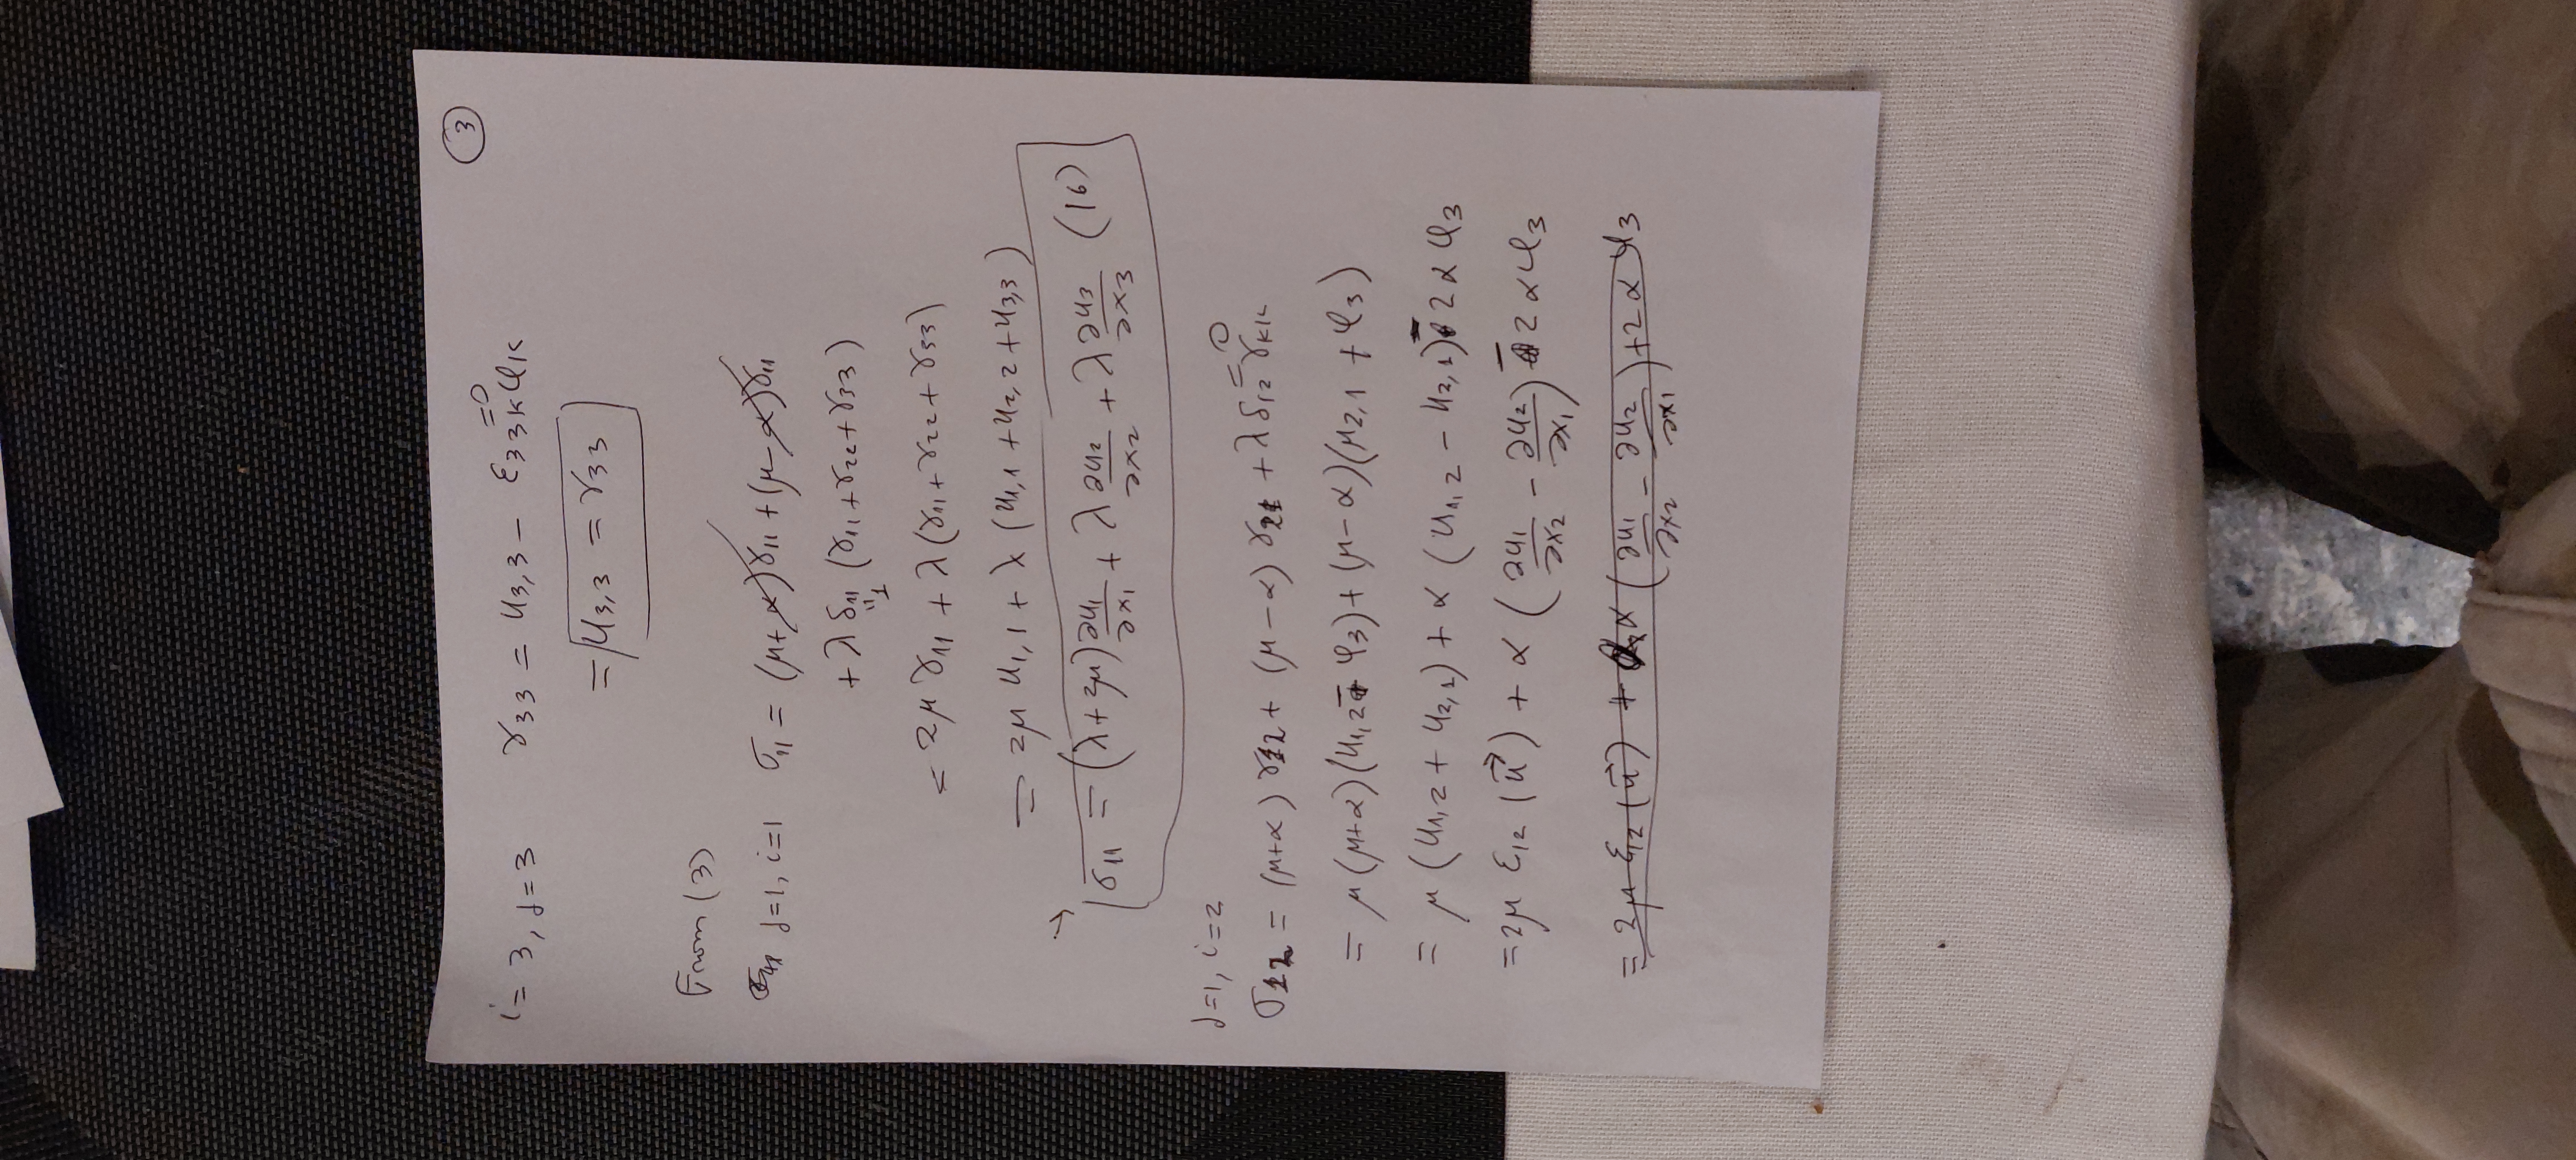 ③
i = 3, j = 3 γ33 = u3,3 − ε33k φk = 0
= u3,3 = γ33
From (3)
j=1, i=1 σ11 = (μ+α)γ11 + (μ−α)γ11
+ λ δ11 (γ11 + γ22 + γ33)
"1
= 2μ γ11 + λ(γ11 + γ22 + γ33)
= 2μ u1,1 + λ (u1,1 + u2,2 + u3,3)
→ σ11 = (λ+2μ) ∂u1/∂x1 + λ ∂u2/∂x2 + λ ∂u3/∂x3 (16)
j=1, i=2
σ12 = (μ+α) γ12 + (μ−α) γ21 + λ δ12 γkk = 0
= μ (μ+α)(u1,2 − φ3) + (μ−α)(μ2,1 + φ3)
= μ (u1,2 + u2,1) + α (u1,2 − u2,1) − 2αφ3
= 2μ ε12 (u⃗) + α (∂u1/∂x2 − ∂u2/∂x1) − 2αφ3
= 2μ ε12 (u⃗) + α (∂u1/∂x2 − ∂u2/∂x1) + 2αφ3